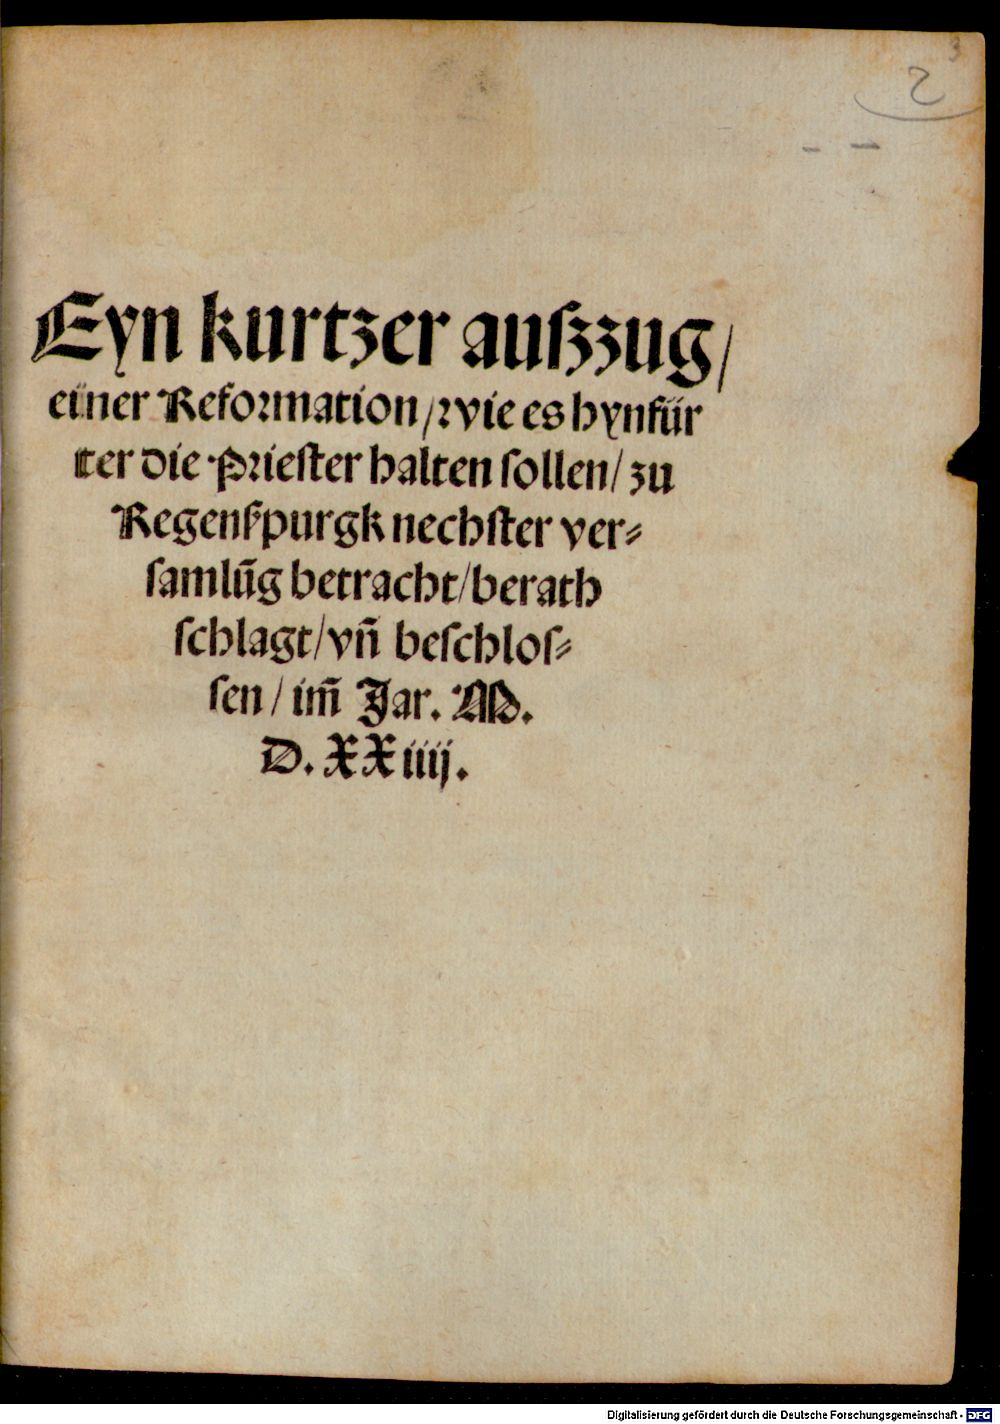 3
2
Eyn kurtzer auſzzug/
einer Reformation/wie es hynfür
ter die Prieſter halten ſollen/ zu
Regenſpurgk nechſter ver⸗
ſamlūg betracht/berath
ſchlagt/vñ beſchloſ⸗
ſen/ im̄ Jar. M.
D. XXiiij.
Digitalisierung gefördert durch die Deutsche Forschungsgemeinschaft - DFG